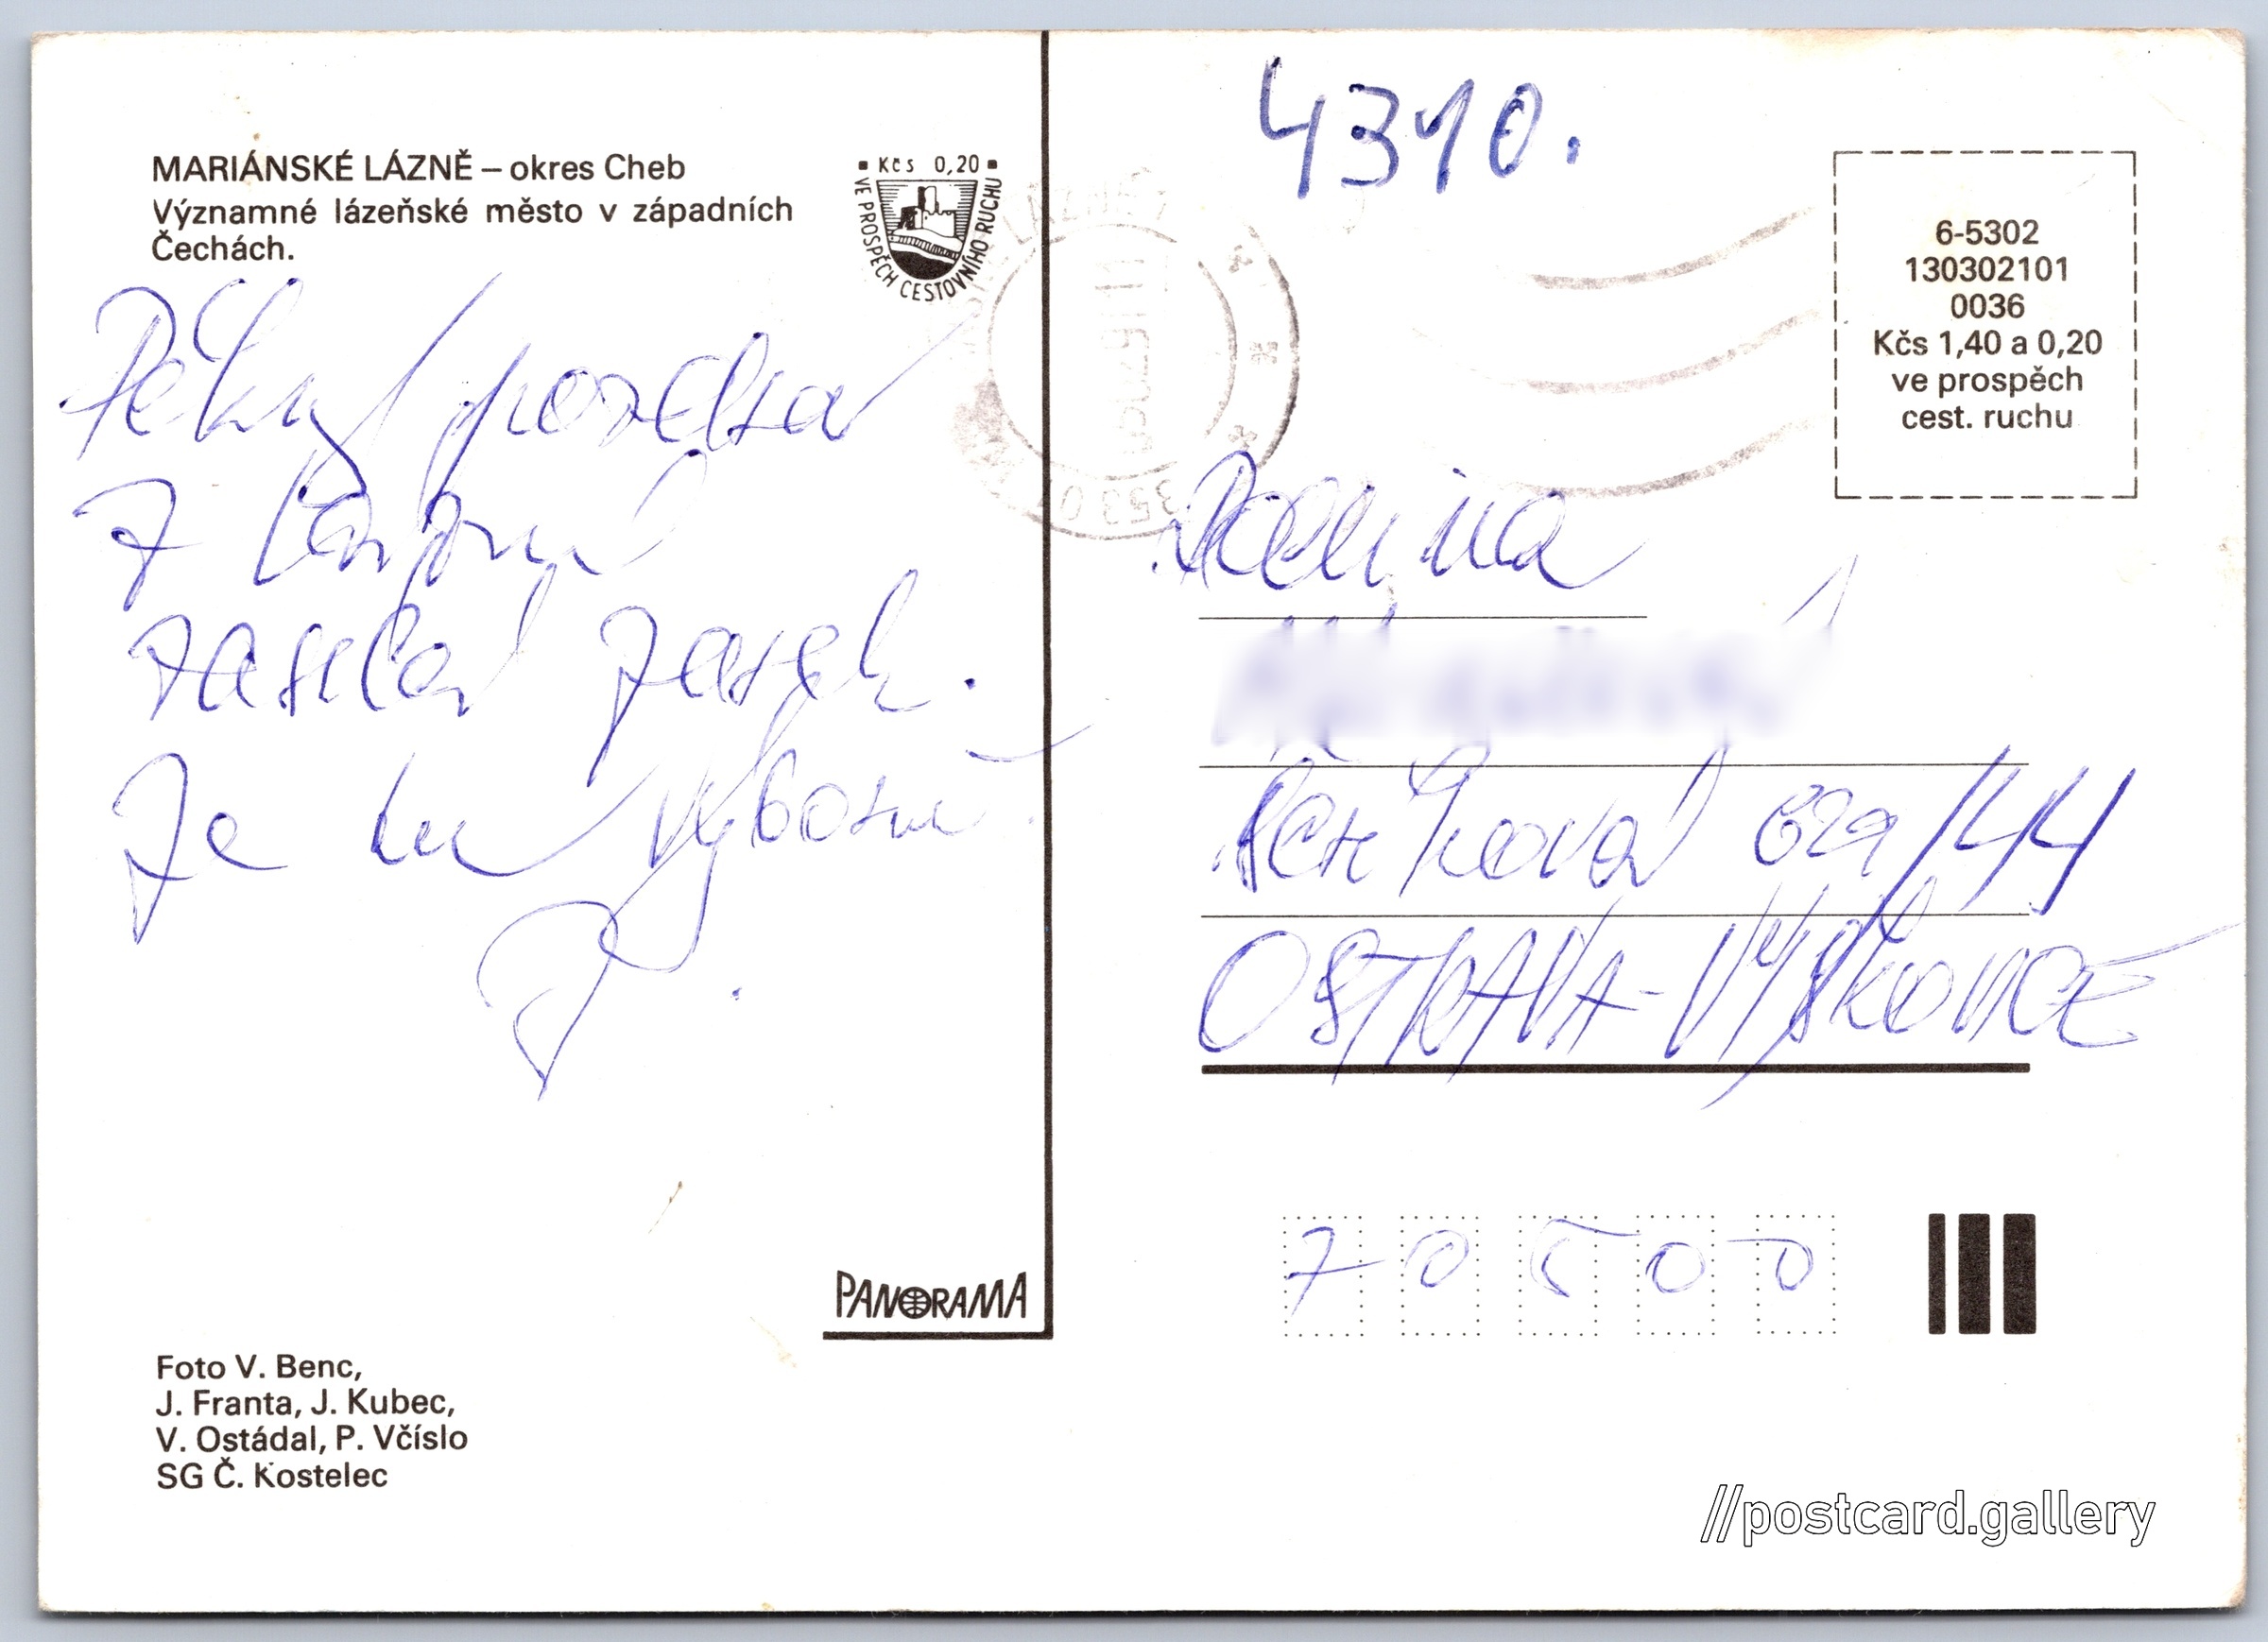 MARIÁNSKÉ LÁZNĚ – okres Cheb
Významné lázeňské město v západních
Čechách.
Kčs 0,20
VE PROSPĚCH CESTOVNÍHO RUCHU
Pěkný pozdrav
z lázní
zasílá
Je
4310.
6-5302
130302101
0036
Kčs 1,40 a 0,20
ve prospěch
cest. ruchu
353 0
Rodina
629/44
OSTRAVA-VÝŠKOVICE
70500
PANORAMA
Foto V. Benc,
J. Franta, J. Kubec,
V. Ostádal, P. Včíslo
SG Č. Kostelec
//postcard.gallery